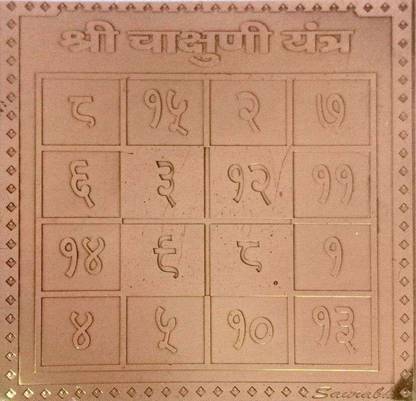 श्री चाक्षुणी यंत्र
८ १५ २ ७
६ ३ १२ ११
१४ ९ ८ १
४ ५ १० १३
Saurabh